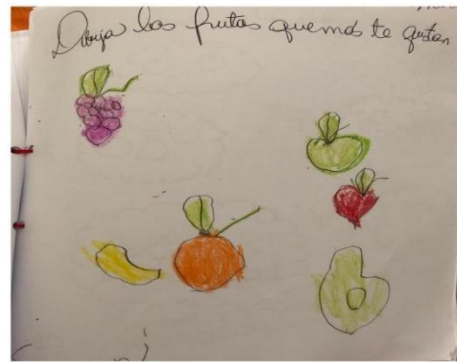 Dibuja las frutas que más te gustan